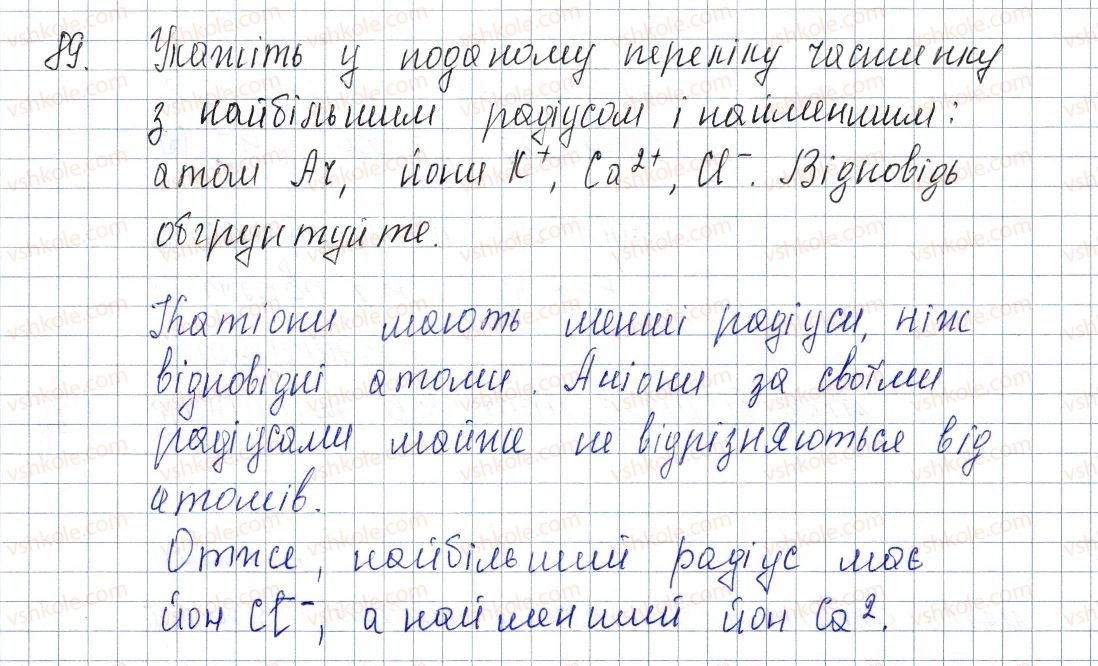 89. Укажіть у поданому переліку частинку
з найбільшим радіусом і найменшим:
атом Ar, йони K⁺, Ca²⁺, Cl⁻. Відповідь
обґрунтуйте.
Катіони мають менші радіуси, ніж
відповідні атоми. Аніони за своїми
радіусами майже не відрізняються від
атомів.
Отже, найбільший радіус має
йон Cl⁻, а найменший йон Ca².